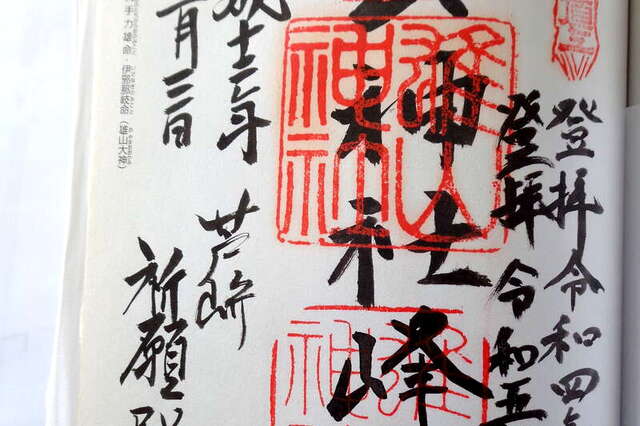 登拝令和四年
登拝令和五
神社峰
本社
雄山神社
成十二年
月三日
芦峅
祈願殿
手力雄命・伊邪那岐命（雄山大神）